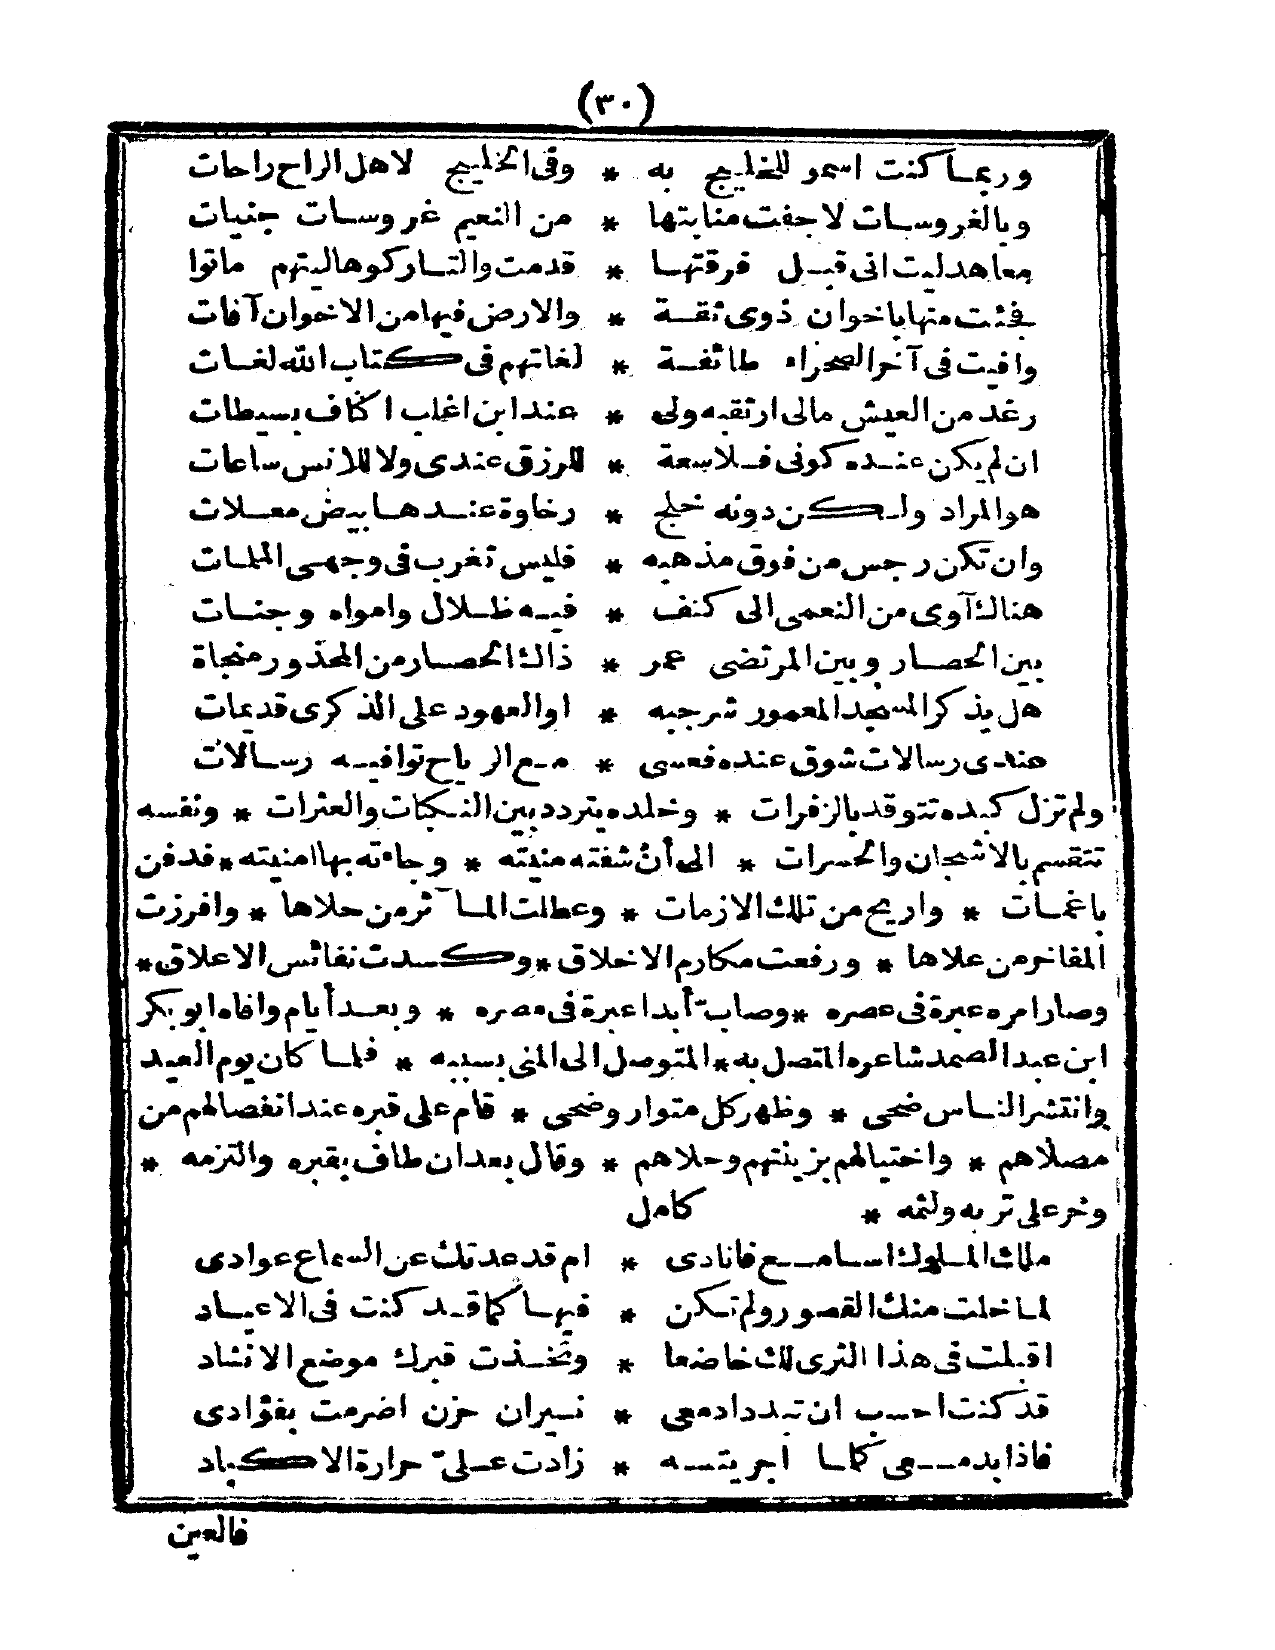 (٣٠)
وربما كنت اسمو للخليج به * وفي الخليج لاهل الراح راحات
وبالغروسات لا جفت منابتها * من النعيم غروسات جنيات
معاهد ليت اني قبل فرقتها * قدمت والتاركوها ليتهم ماتوا
فجئت منها باخوان ذوي ثقة * والارض فيها من الاخوان آفات
وافيت في آخر الصحراء طائفة * لغاتهم في كتاب الله لغات
رغد من العيش مالي ارتقبه ولي * عند ابن اغلب اكناف بسيطات
ان لم يكن عنده كوني فلا سعة * للرزق عندي ولا للانس ساعات
هو المراد ولكن دونه خلج * رخاوة عندها بيض معلات
وان تكن رجس من فوق مذهبه * فليس تغرب في وجهي الملمات
هناك آوي من النعمى الى كنف * فيه ظلال وامواه وجنات
بين الحصار وبين المرتضى عمر * ذاك الحصار من المحذور منجاة
هل يذكر المسجد المعمور شرجبه * او العهود على الذكرى قديمات
عندي رسالات شوق عنده فعسى * مع الرياح توافيه رسالات
ولم تزل كبده تتوقد بالزفرات * وخلده يتردد بين النكبات والعثرات * ونفسه
تتقسم بالاشجان والحسرات * الى أن شفته منيته * وجاءته بها امنيته * فدفن
باغمات * واريح من تلك الازمات * وعطلت المآثر من حلاها * وافرزت
المفاخر من علاها * ورفعت مكارم الاخلاق * وكسدت نفائس الاعلاق *
وصار امره عبرة في عصره * وصاب أبدا عبرة في مصره * وبعد أيام وافاه ابو بكر
ابن عبد الصمد شاعره المتصل به * المتوصل الى المنى بسببه * فلما كان يوم العيد
وانتشر الناس ضحى * وظهر كل متوار وضحى * قام على قبره عند انفصالهم من
مصلاهم * واختيالهم بزينتهم وحلاهم * وقال بعد ان طاف بقبره والتزمه *
وخر على تربه ولثمه * كامل
ملك الملوك اسامع فانادي * ام قد عدتك عن السماع عوادي
لما خلت منك القصور ولم تكن * فيها كما قد كنت في الاعياد
اقبلت في هذا الثرى لك خاضعا * وتخذت قبرك موضع الانشاد
قد كنت احسب ان تبدد ادمعي * نيران حزن اضرمت بفؤادي
فاذا بدمعي كلما اجريته * زادت علي حرارة الاكباد
فالعين